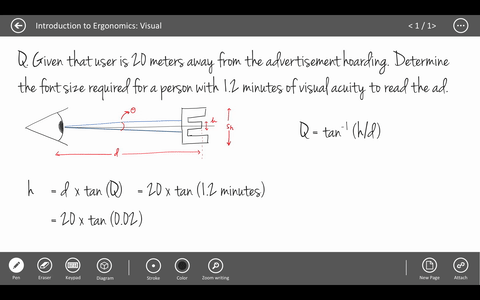 Introduction to Ergonomics: Visual
< 1 / 1 >
Q. Given that user is 20 meters away from the advertisement hoarding. Determine
the font size required for a person with 1.2 minutes of visual acuity to read the ad.
θ
h
5h
d
Q = tan⁻¹ (h/d)
h = d x tan (Q) = 20 x tan (1.2 minutes)
= 20 x tan (0.02)
Pen
Eraser
Keypad
Diagram
Stroke
Color
Zoom writing
New Page
Attach